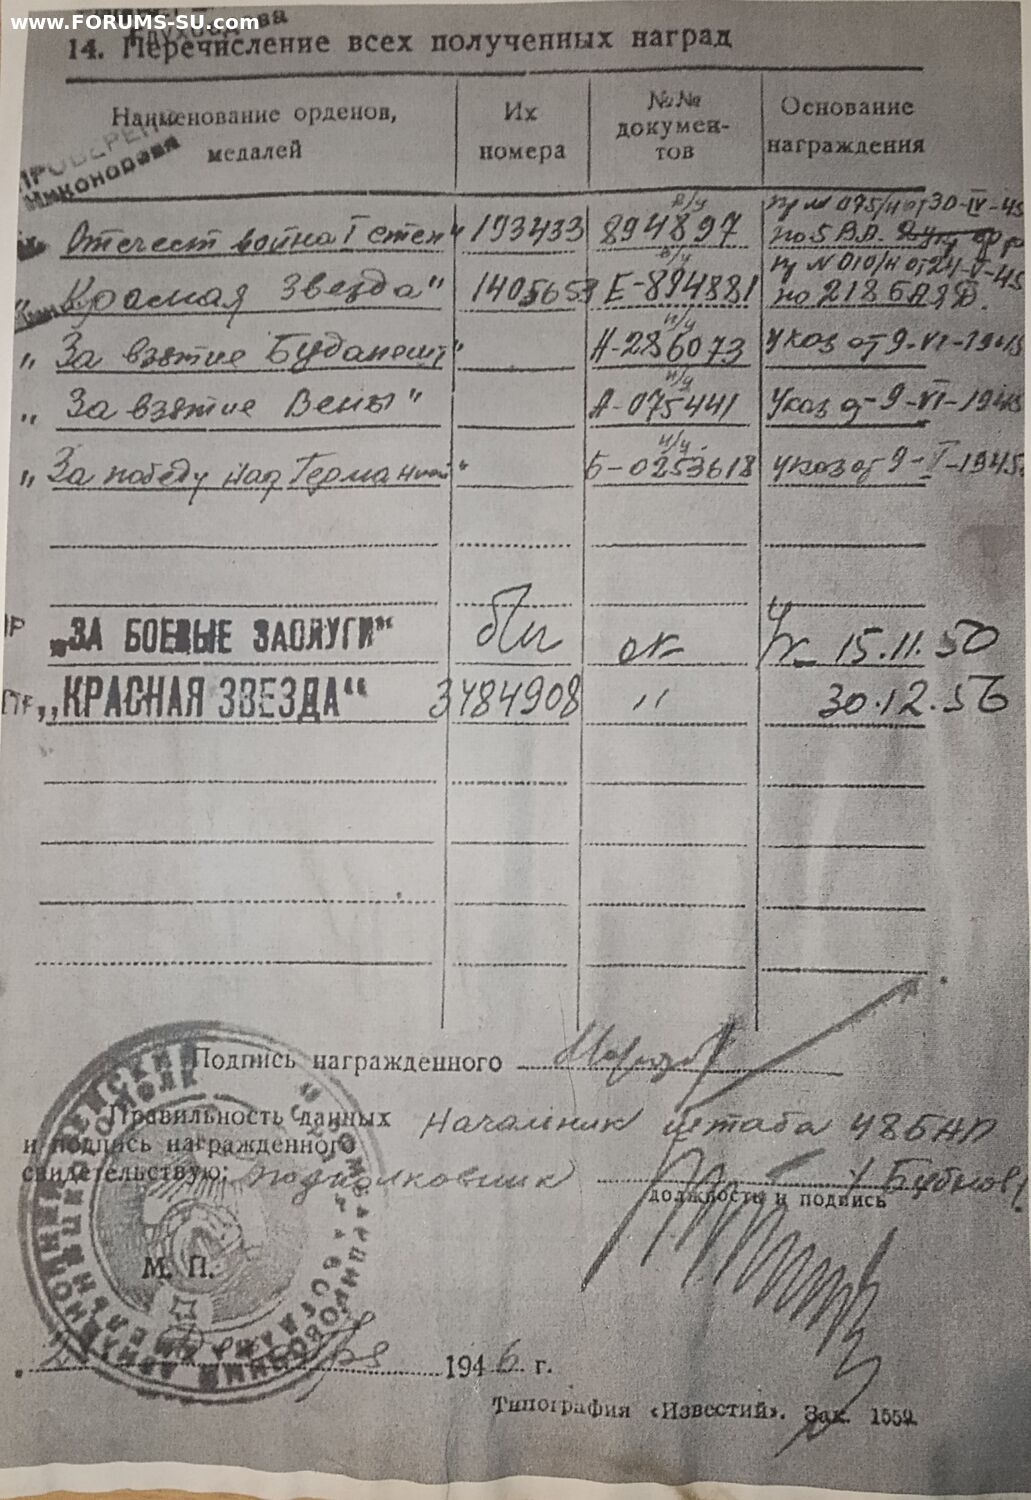 www.FORUMS-SU.com
14. Перечисление всех полученных наград
Наименование орденов, медалей
Их номера
№№ документов
Основание награждения
ПРОВЕРЕН
Никонорова
Отечест война I степ" 193433 в/у 894897 пр № 075/н от 30-IV-45 по 5 В.А.
"Красная Звезда" 1405653 в/у Е-894881 пр № 010/н от 24-V-45 по 218 БАД.
"За взятие Будапешт" н/у А-286073 Указ от 9-VI-1945
"За взятие Вены" н/у А-075441 Указ от 9-VI-1945
"За победу над Германией" н/у Б-0253618 указ от 9-V-1945
„ЗА БОЕВЫЕ ЗАСЛУГИ“ б/н ок Ук 15.11.50
„КРАСНАЯ ЗВЕЗДА“ 3484908 " 30.12.56
Подпись награжденного
Правильность данных Начальник штаба 48БАП
и подпись награжденного
свидетельствую: подполковник / Бубнов /
должность и подпись
М. П.
1946 г.
Типография «Известий». Зак. 1559.